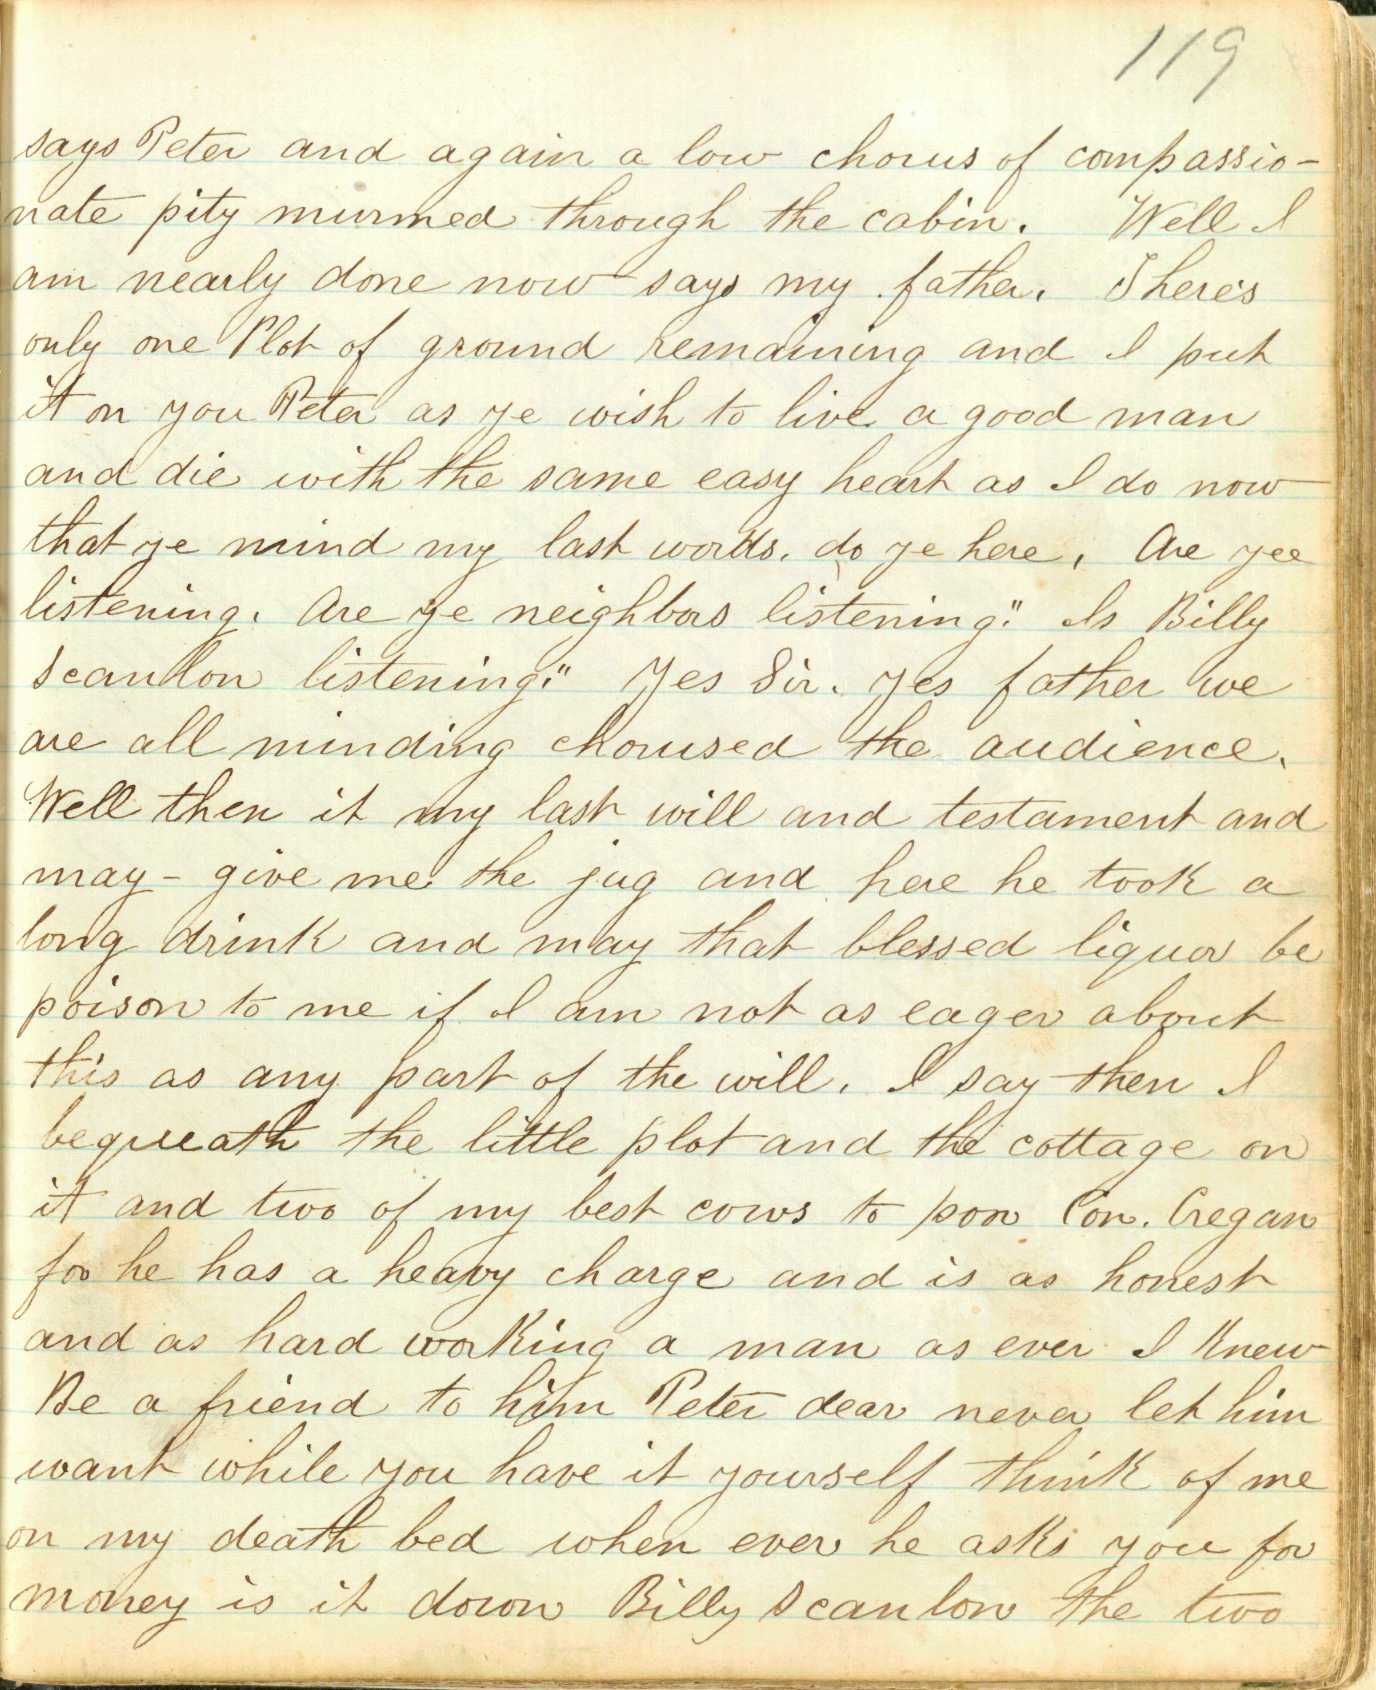 119
says Peter and again a low chorus of compassio-
nate pity murmed through the cabin. Well I
am nearly done now says my father. There's
only one Plot of ground remaining and I put
it on you Peter as ye wish to live a good man
and die with the same easy heart as I do now
that ye mind my last words. do ye here, Are yee
listening. Are ye neighbors listening." Is Billy
Scanlon listening." Yes Sir. yes father we
are all minding chorused the audience.
Well then it my last will and testament and
may - give me the jug and here he took a
long drink and may that blessed liquor be
poison to me if I am not as eager about
this as any part of the will. I say then I
bequeath the little plot and the cottage on
it and two of my best cows to poor Con. Cregan
for he has a heavy charge and is as honest
and as hard working a man as ever I knew
Be a friend to him Peter dear never let him
want while you have it yourself think of me
on my death bed when ever he asks you for
money is it down Billy Scanlon the two